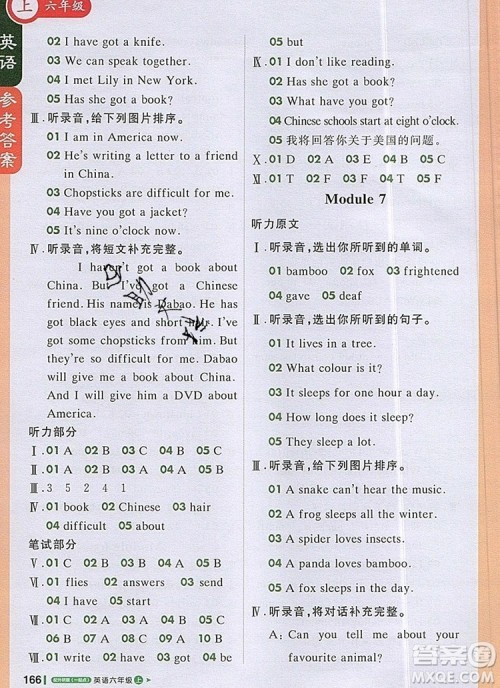 上 六年级
英语
参考答案
02 I have got a knife.
03 We can speak together.
04 I met Lily in New York.
05 Has she got a book?
Ⅲ. 听录音,给下列图片排序。
01 I am in America now.
02 He's writing a letter to a friend
in China.
03 Chopsticks are difficult for me.
04 Have you got a jacket?
05 It's nine o'clock now.
Ⅳ. 听录音,将短文补充完整。
I haven't got a book about
China. But I've got a Chinese
friend. His name is Dabao. He has
got black eyes and short hair. I've
got some chopsticks from him. But
they're so difficult for me. Dabao
will give me a book about China.
And I will give him a DVD about
America.
听力部分
Ⅰ. 01 A 02 B 03 C 04 B 05 C
Ⅱ. 01 B 02 B 03 A 04 A 05 B
Ⅲ. 3 5 2 4 1
Ⅳ. 01 book 02 Chinese 03 hair
04 difficult 05 about
笔试部分
Ⅴ. 01 C 02 B 03 A 04 B 05 C
Ⅵ. 01 flies 02 answers 03 send
04 I have 05 start
Ⅶ. 01 C 02 B 03 C 04 A 05 B
06 B 07 B 08 A 09 B 10 C
Ⅷ. 01 to 02 have 03 with 04 about
05 but
Ⅸ. 01 I don't like reading.
02 Has she got a book?
03 What have you got?
04 Chinese schools start at eight o'clock.
05 我将回答你关于美国的问题。
Ⅹ. 01 D 02 A 03 E 04 B 05 C
Ⅺ. 01 T 02 F 03 F 04 F 05 T
Module 7
听力原文
Ⅰ. 听录音,选出你所听到的单词。
01 bamboo 02 fox 03 frightened
04 gave 05 deaf
Ⅱ. 听录音,选出你所听到的句子。
01 It lives in a tree.
02 What colour is it?
03 It sleeps for one hour a day.
04 How long does it sleep?
05 They sleep a lot.
Ⅲ. 听录音,给下列图片排序。
01 A snake can't hear the music.
02 A frog sleeps all the winter.
03 A spider loves insects.
04 A panda loves bamboo.
05 A cat is sleeping.
Ⅳ. 听录音,将对话补充完整。
A: Can you tell me about your
favourite animal?
166 英语六年级 上
答案圈
MXQE.COM